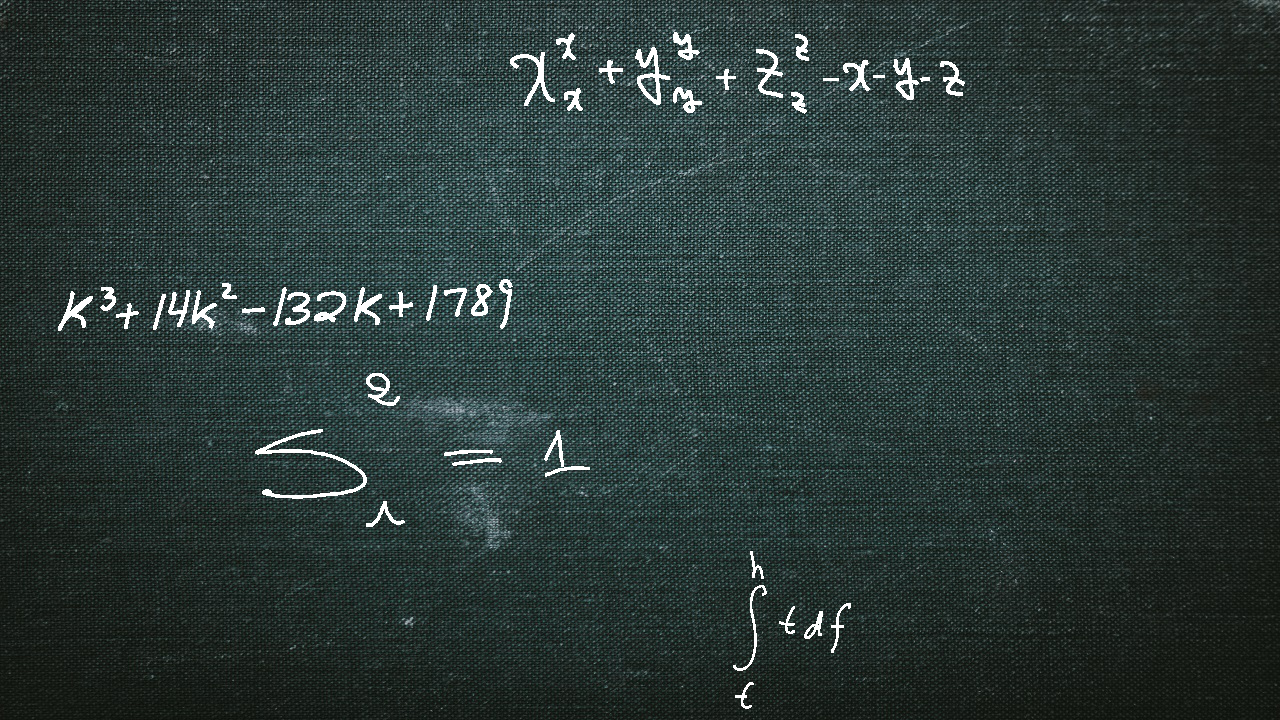 x_x^x + y_y^y + z_z^z - x - y - z
k^3 + 14k^2 - 132k + 1789
S_λ^2 = 1
∫_t^h t df